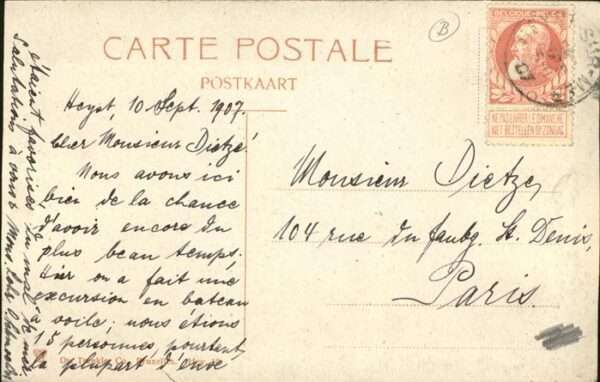 CARTE POSTALE
POSTKAART
B
BELGIQUE
NE PAS LIVRER LE DIMANCHE
NIET BESTELLEN OP ZONDAG
Heyst, 10 Sept. 1907.
Cher Monsieur Dietze!
Nous avons ici
bien de la chance
d'avoir encore du
plus beau temps.
Hier on a fait une
excursion en bateau
voile; nous étions
15 personnes pourtant
la plupart d'eux
étaient favorises du mal de mer
Salutations à vous
Monsieur Dietze,
104 rue du faubg. St. Denis,
Paris.